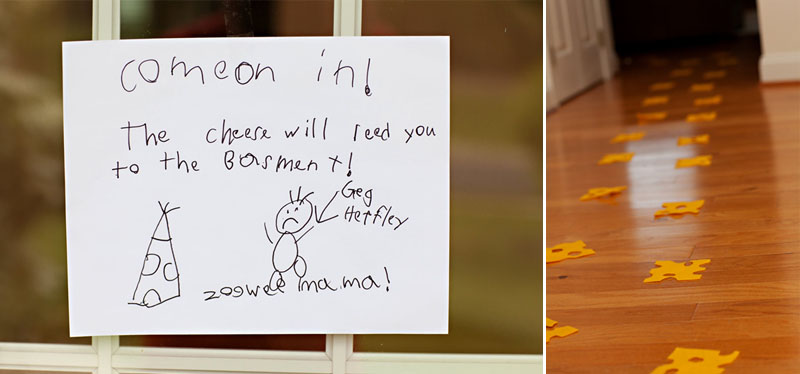 comeon in!
The cheese will leed you
to the Basment!
Geg
Hetfley
zoowee mama!